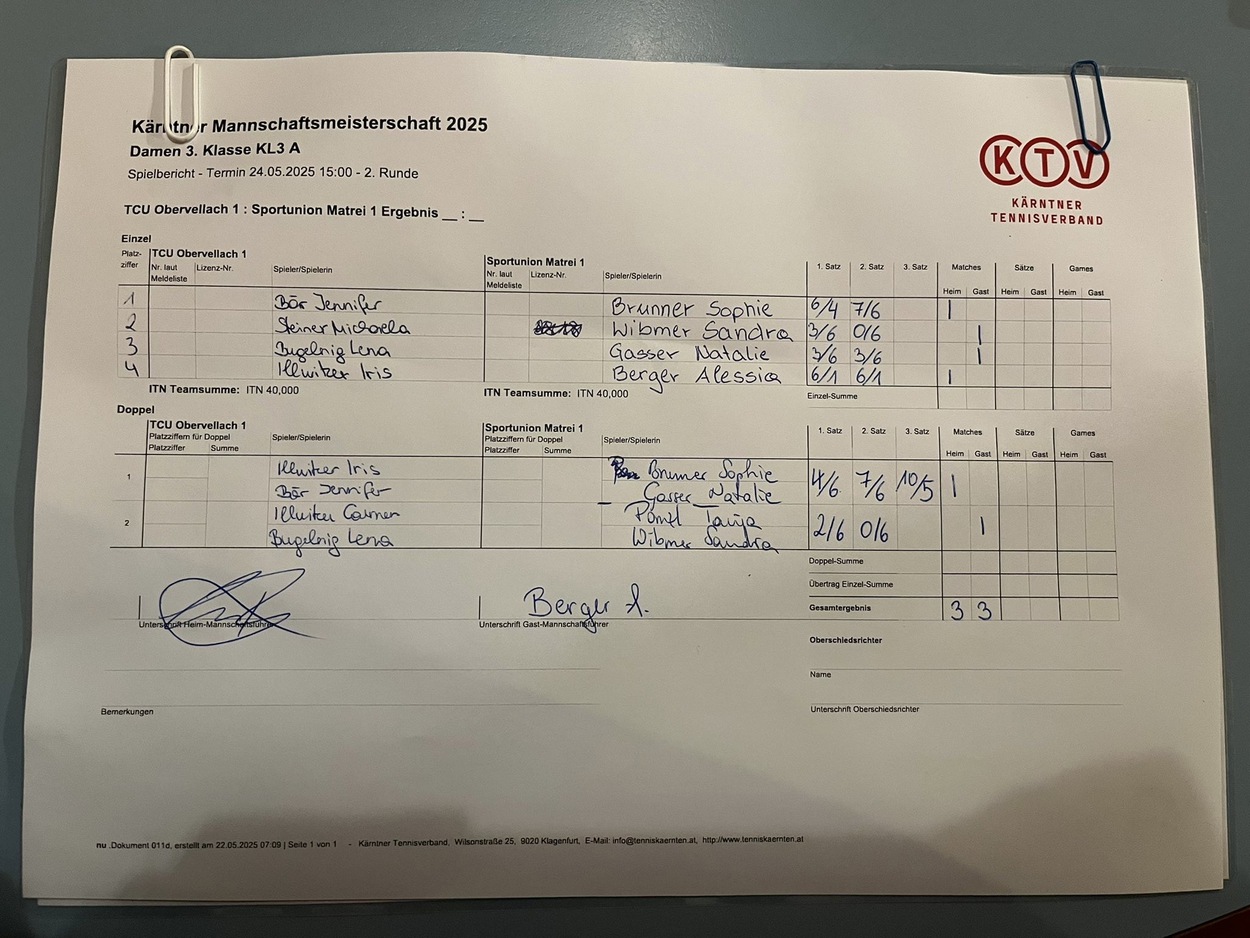 Kärntner Mannschaftsmeisterschaft 2025
Damen 3. Klasse KL3 A
Spielbericht - Termin 24.05.2025 15:00 - 2. Runde
KTV
KÄRNTNER
TENNISVERBAND
TCU Obervellach 1 : Sportunion Matrei 1 Ergebnis __ : __
Einzel
Platz-ziffer TCU Obervellach 1 Sportunion Matrei 1 1. Satz 2. Satz 3. Satz Matches Sätze Games
Nr. laut Meldeliste Lizenz-Nr. Spieler/Spielerin Nr. laut Meldeliste Lizenz-Nr. Spieler/Spielerin Heim Gast Heim Gast Heim Gast
1 Bär Jennifer Brunner Sophie 6/4 7/6 |
2 Steiner Michaela Wibmer Sandra 3/6 0/6 |
3 Bugelnig Lena Gasser Natalie 3/6 3/6 |
4 Illwitzer Iris Berger Alessia 6/1 6/1 |
ITN Teamsumme: ITN 40,000 ITN Teamsumme: ITN 40,000 Einzel-Summe
Doppel
TCU Obervellach 1 Sportunion Matrei 1 1. Satz 2. Satz 3. Satz Matches Sätze Games
Platzziffern für Doppel Spieler/Spielerin Platzziffern für Doppel Spieler/Spielerin
Platzziffer Summe Platzziffer Summe Heim Gast Heim Gast Heim Gast
1 Illwitzer Iris Brunner Sophie 4/6 7/6 10/5 |
Bär Jennifer Gasser Natalie
2 Illwitzer Carmen Tanja 2/6 0/6 |
Bugelnig Lena Wibmer Sandra
Doppel-Summe
Übertrag Einzel-Summe
Gesamtergebnis 3 3
Berger A.
Unterschrift Heim-Mannschaftsführer Unterschrift Gast-Mannschaftsführer
Oberschiedsrichter
Name
Bemerkungen Unterschrift Oberschiedsrichter
nu .Dokument 011d, erstellt am 22.05.2025 07:09 | Seite 1 von 1 - Kärntner Tennisverband, Wilsonstraße 25, 9020 Klagenfurt, E-Mail: info@tenniskaernten.at, http://www.tenniskaernten.at